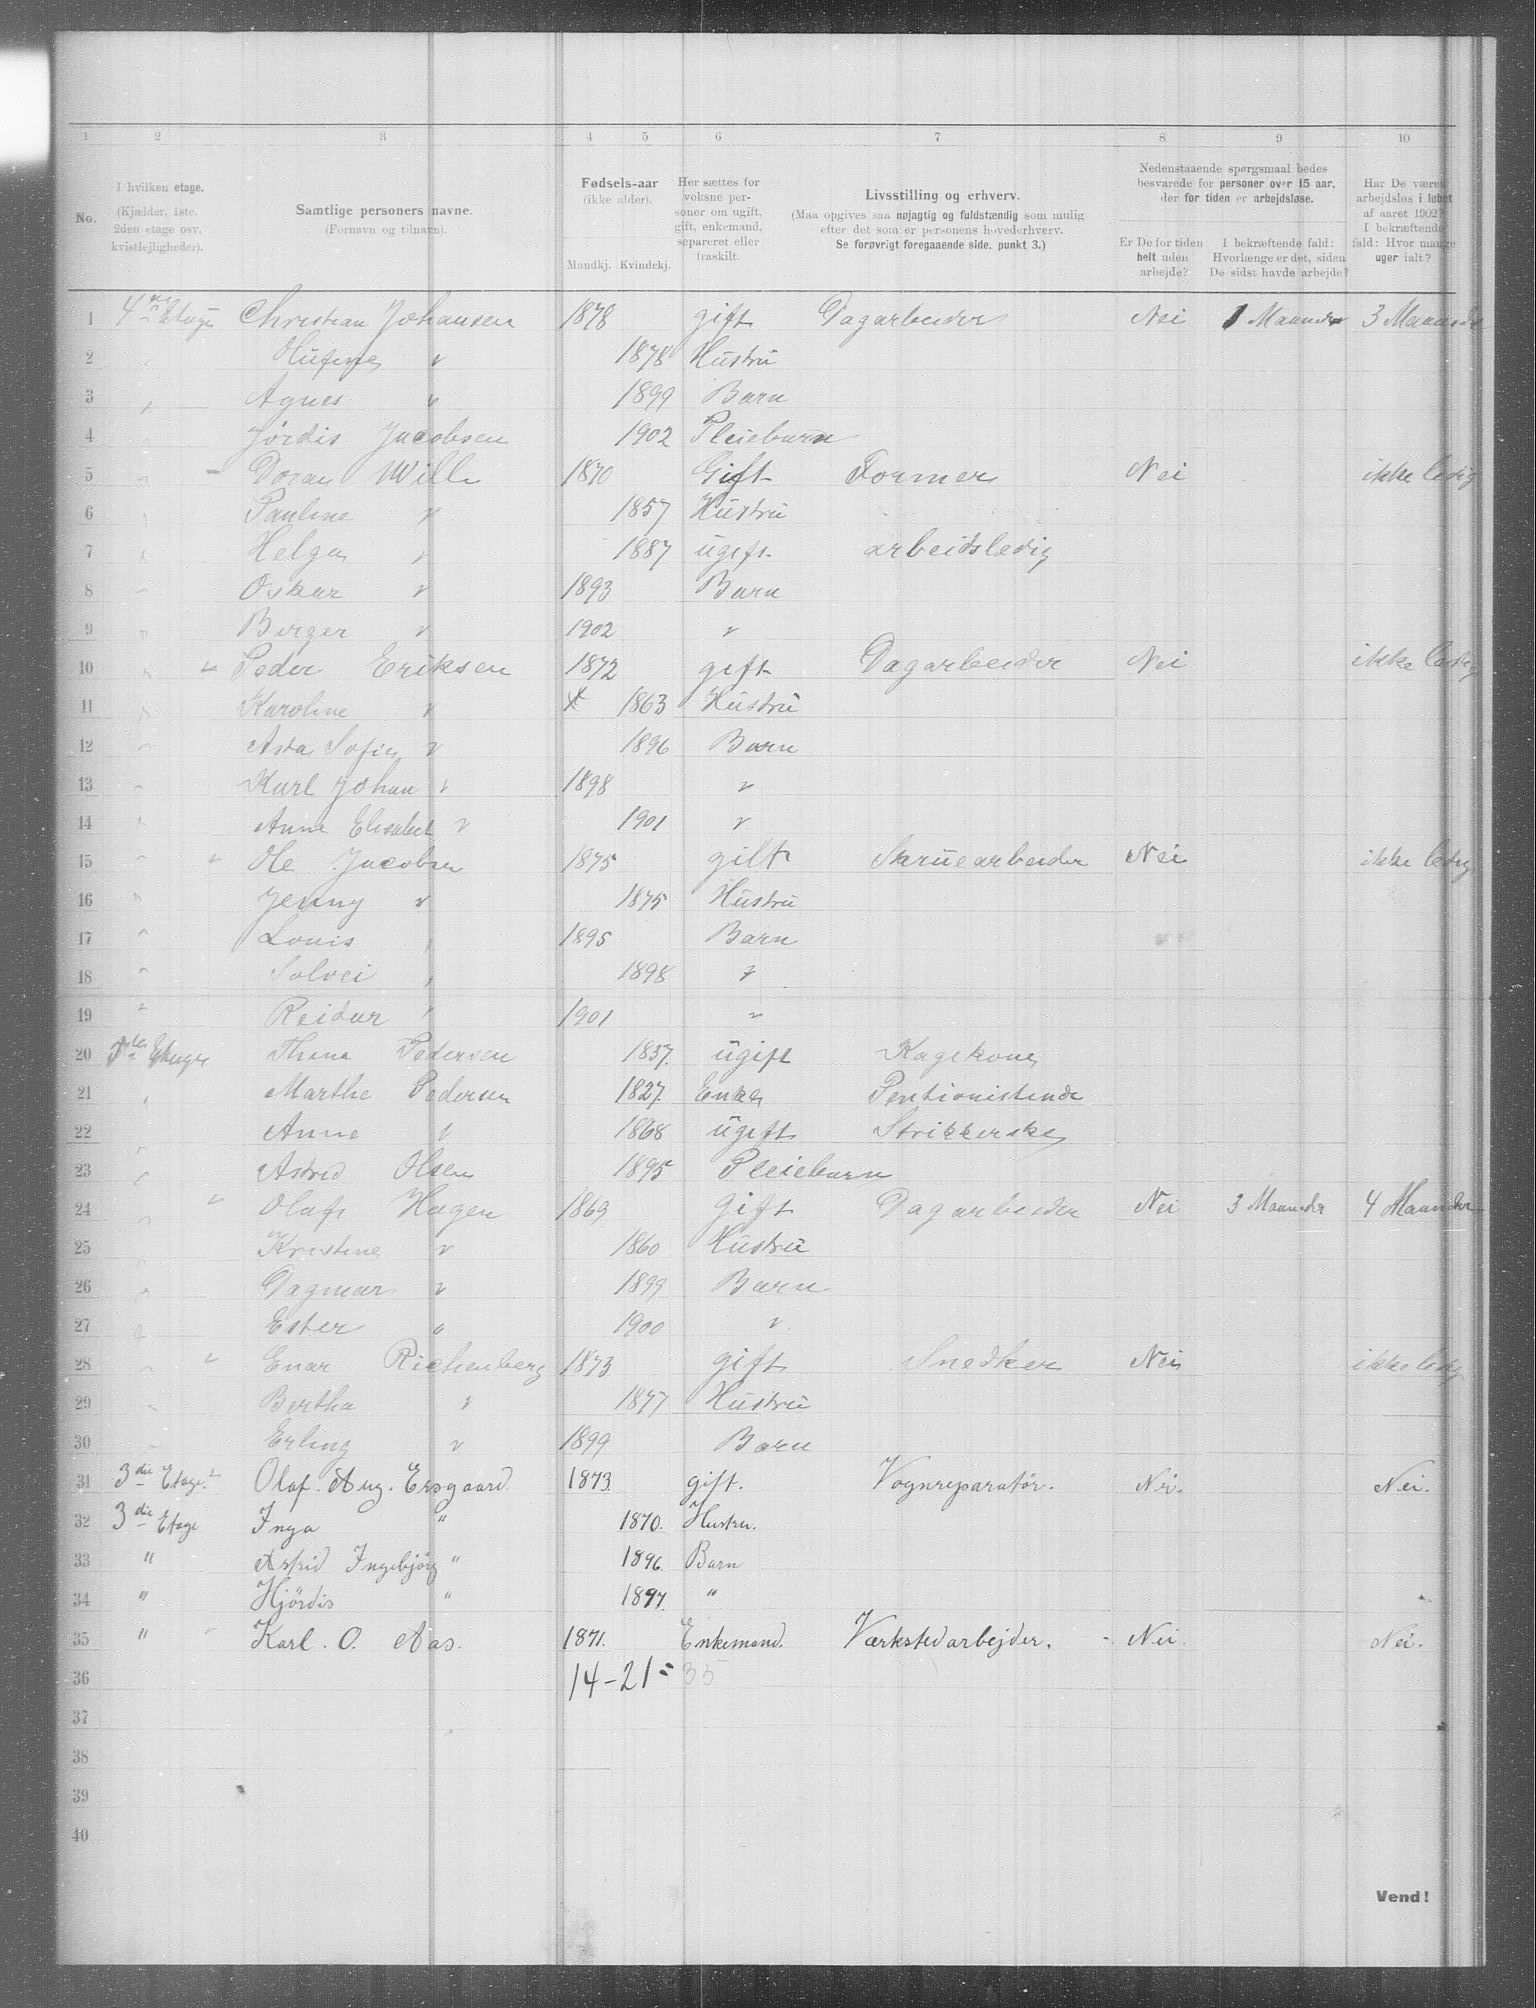 1 2 3 4 5 6 7 8 9 10
No.
I hvilken etage.
(Kjælder, 1ste.
2den etage osv.
kvistlejligheder).
Samtlige personers navne.
(Fornavn og tilnavn).
Fødsels-aar
(ikke alder).
Mandkj. Kvindekj.
Her sættes for
voksne per-
soner om ugift,
gift, enkemand,
separeret eller
fraskilt.
Livsstilling og erhverv.
(Maa opgives saa nøjagtig og fuldstændig som mulig
efter det som er personens hovederhverv.
Se forøvrigt foregaaende side, punkt 3.)
Nedenstaaende spørgsmaal bedes
besvarede for personer over 15 aar,
der for tiden er arbejdsløse.
Er De for tiden
helt uden
arbejde?
I bekræftende fald:
Hvorlænge er det, siden
De sidst havde arbejde?
Har De været
arbejdsløs i løbet
af aaret 1902?
I bekræftende
fald: Hvor mange
uger ialt?
1 4de Etage Christian Johansen 1878 gift Dagarbeider Nei 1 Maander 3 Maaneder
2 " 1878 Hustru
3 Agnes " 1899 Barn
4 Jórdis Jacobsen 1902 Pleiebarn
5 Wille 1870 Gift Former Nei ikke ledig
6 Pauline " 1857 Hustru
7 Helga " 1887 ugift arbeidsledig
8 Oskar " 1893 Barn
9 Birger " 1902 "
10 " Peder Eriksen 1872 gift Dagarbeider Nei ikke ledig
11 Karoline " 1863 Hustru
12 Asta Sofie " 1896 Barn
13 Karl Johan " 1898 "
14 Anna Elisabet " 1901 "
15 " Ole Jacobsen 1875 gift Skruearbeider Nei ikke ledig
16 " Jenny " 1875 Hustru
17 " Louis " 1895 Barn
18 " Solvei " 1898 "
19 " Reidar " 1901 "
20 Etage Thina Pedersen 1837. ugift Kagekone
21 " Marthe Pedersen 1827. Enke Pentionistinde
22 " Anna " 1868 ugift Strikkerske
23 " Astrid Olsen 1895 Pleiebarn
24 " Olaf Hagen 1869 gift Dagarbeider Nei 3 Maaneder 4 Maaneder
25 " Kristine " 1860 Hustru
26 " Dagmar " 1899 Barn
27 " Ester " 1900 "
28 " Enar Richenberg 1873 gift Snedker Nei ikke ledig
29 " Bertha " 1877 Hustru
30 Erling " 1899 Barn
31 3die Etage. Olaf. Aug. Ersgaard 1873 gift. Vognreparatør. Nei. Nei.
32 3die Etage Inga " 1870. Hustru.
33 " Astrid Ingebjörg " 1896. Barn
34 " Hjördis " 1897. "
35 " Karl. O. Aas. 1871. Enkemand. Værkstedarbejder. - Nei. Nei.
36 14-21= 35
37
38
39
40
Vend!